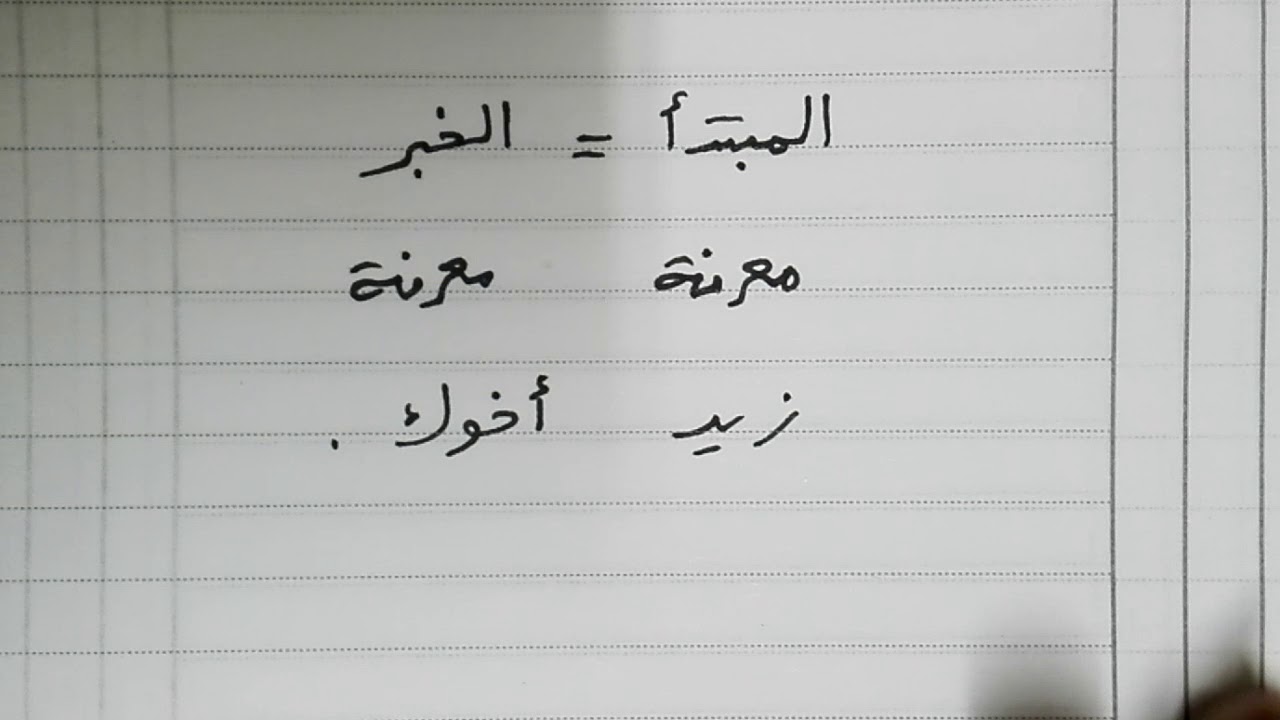 المبتدأ = الخبر
معرفة معرفة
زيد أخوك .